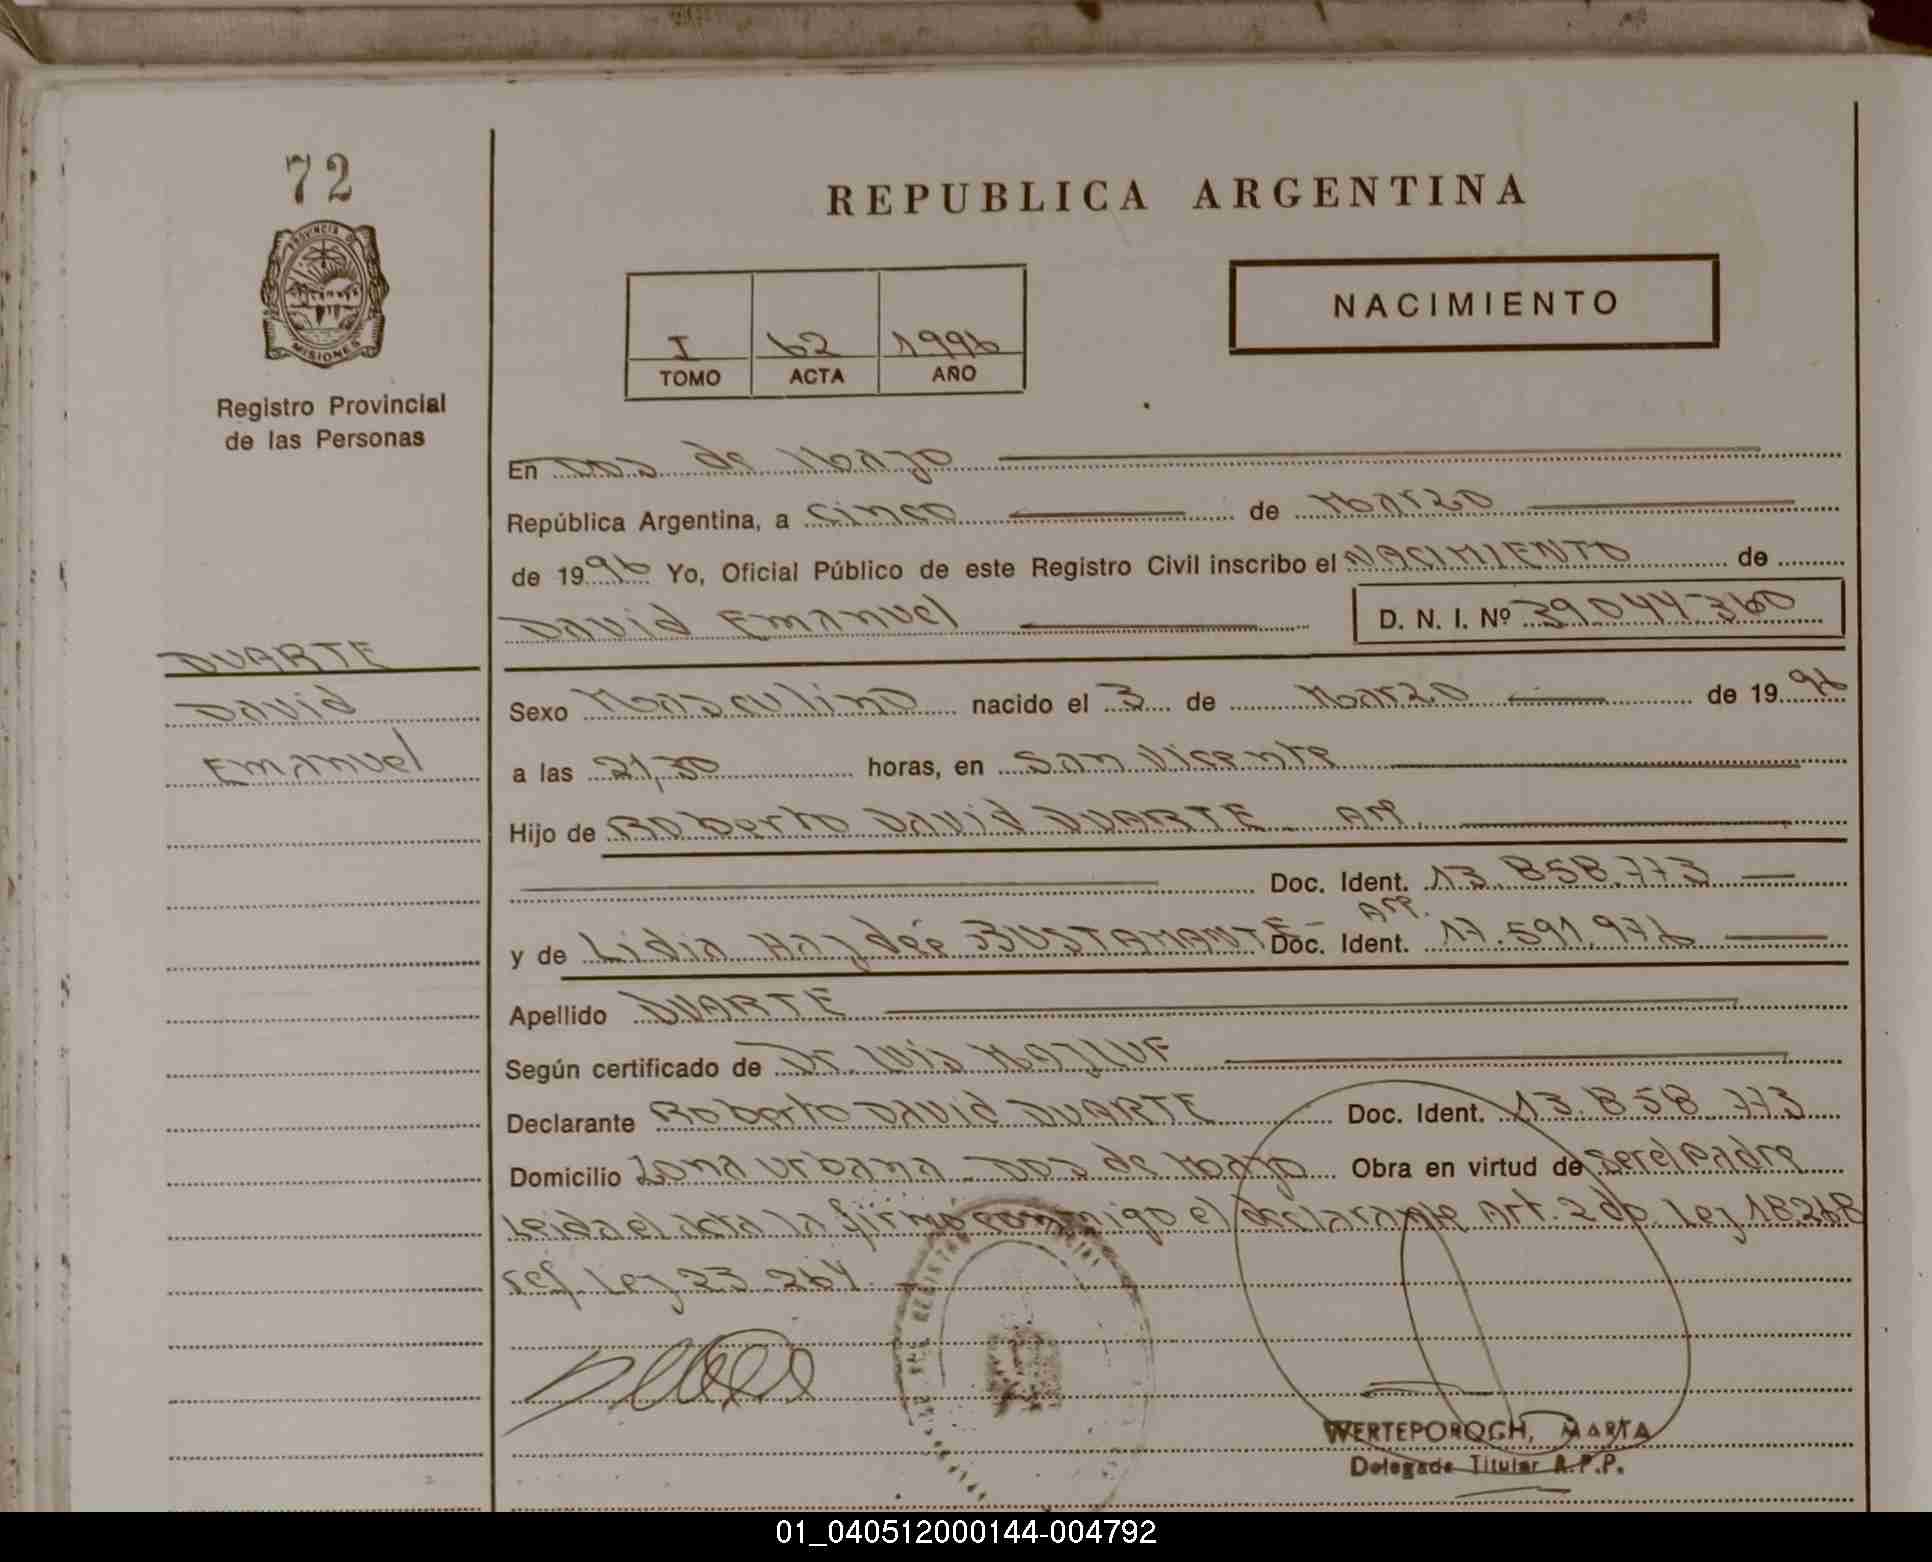 72
PROVINCIA DE
MISIONES
Registro Provincial
de las Personas
DUARTE
David
Emanuel
REPUBLICA ARGENTINA
I 62 1996
TOMO ACTA AÑO
NACIMIENTO
En Dos de Mayo
República Argentina, a cinco de Marzo
de 1996 Yo, Oficial Público de este Registro Civil inscribo el NACIMIENTO de
David Emanuel D. N. I. Nº 39.044.360
Sexo Masculino nacido el 3 de Marzo de 1996
a las 21,30 horas, en San Vicente
Hijo de Roberto David DUARTE - Arg.
Doc. Ident. 13.858.773
y de Lidia Haydée BUSTAMANTE - Arg. Doc. Ident. 17.591.976
Apellido DUARTE
Según certificado de Dr. Luis MAJLUF
Declarante Roberto David DUARTE Doc. Ident. 13.858.773
Domicilio Zona urbana - Dos de Mayo Obra en virtud de ser el padre
Leida el acta la firmó conmigo el declarante Art. 2do. Ley 18.268
ref. Ley 23.264
WERTEPOROGH, MARTA
Delegada Titular R.P.P.
01_040512000144-004792